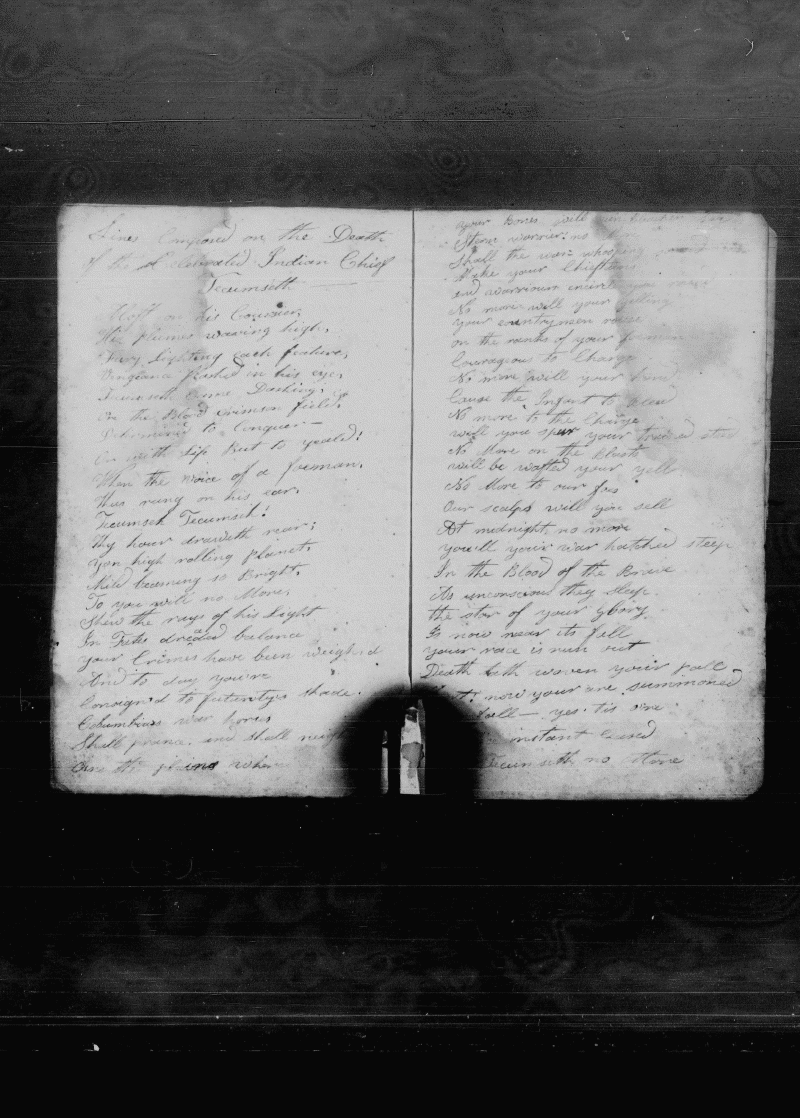 Lines Composed on the Death
of the Celebrated Indian Chief
Tecumseth
Aloft on his Coursier,
His plumes waving high,
Fury Lighting each feature,
Vengiance flashed in his eye,
Tecumseh Came Dashing,
On the Blood crimson field,
Determined to Conquer —
Or with Life But to yeald!
When the voice of a foeman,
Thus rung on his ear,
Tecumseh Tecumseh!
Thy hour draweth near;
Yon high rolling planet,
Mild beaming so Bright,
To you will no More,
Shew the rays of his Light
In Fates dreaded balance
your Crimes have been weighed
And to day you're
Consign'd to futerity's shade.
Columbias war horses
Shall prance, and shall neigh
Ore the plains where
your Bones will
Stern worrior; no
Shall the war whooping
Make your Chieftens
and worriours encircle you
No more will your yelling
your countrymen
on the ranks of your foemen
Couragous to Charge
No more will your
Cause the Infant to bleed
No more to the Charge
will you spur your steed
No More on the
will be wafted your yell
No More to our foes
Our scalps will you sell
At midnight no more
you'll your war hatchet steep
In the Blood of the Brave
As unconscious they sleep
the star of your glory
Is now near its fell
your race is nuin out
Death hath woven your pall
now your are summoned
fall — yes tis ore
instant ceased
Tecumseth no More